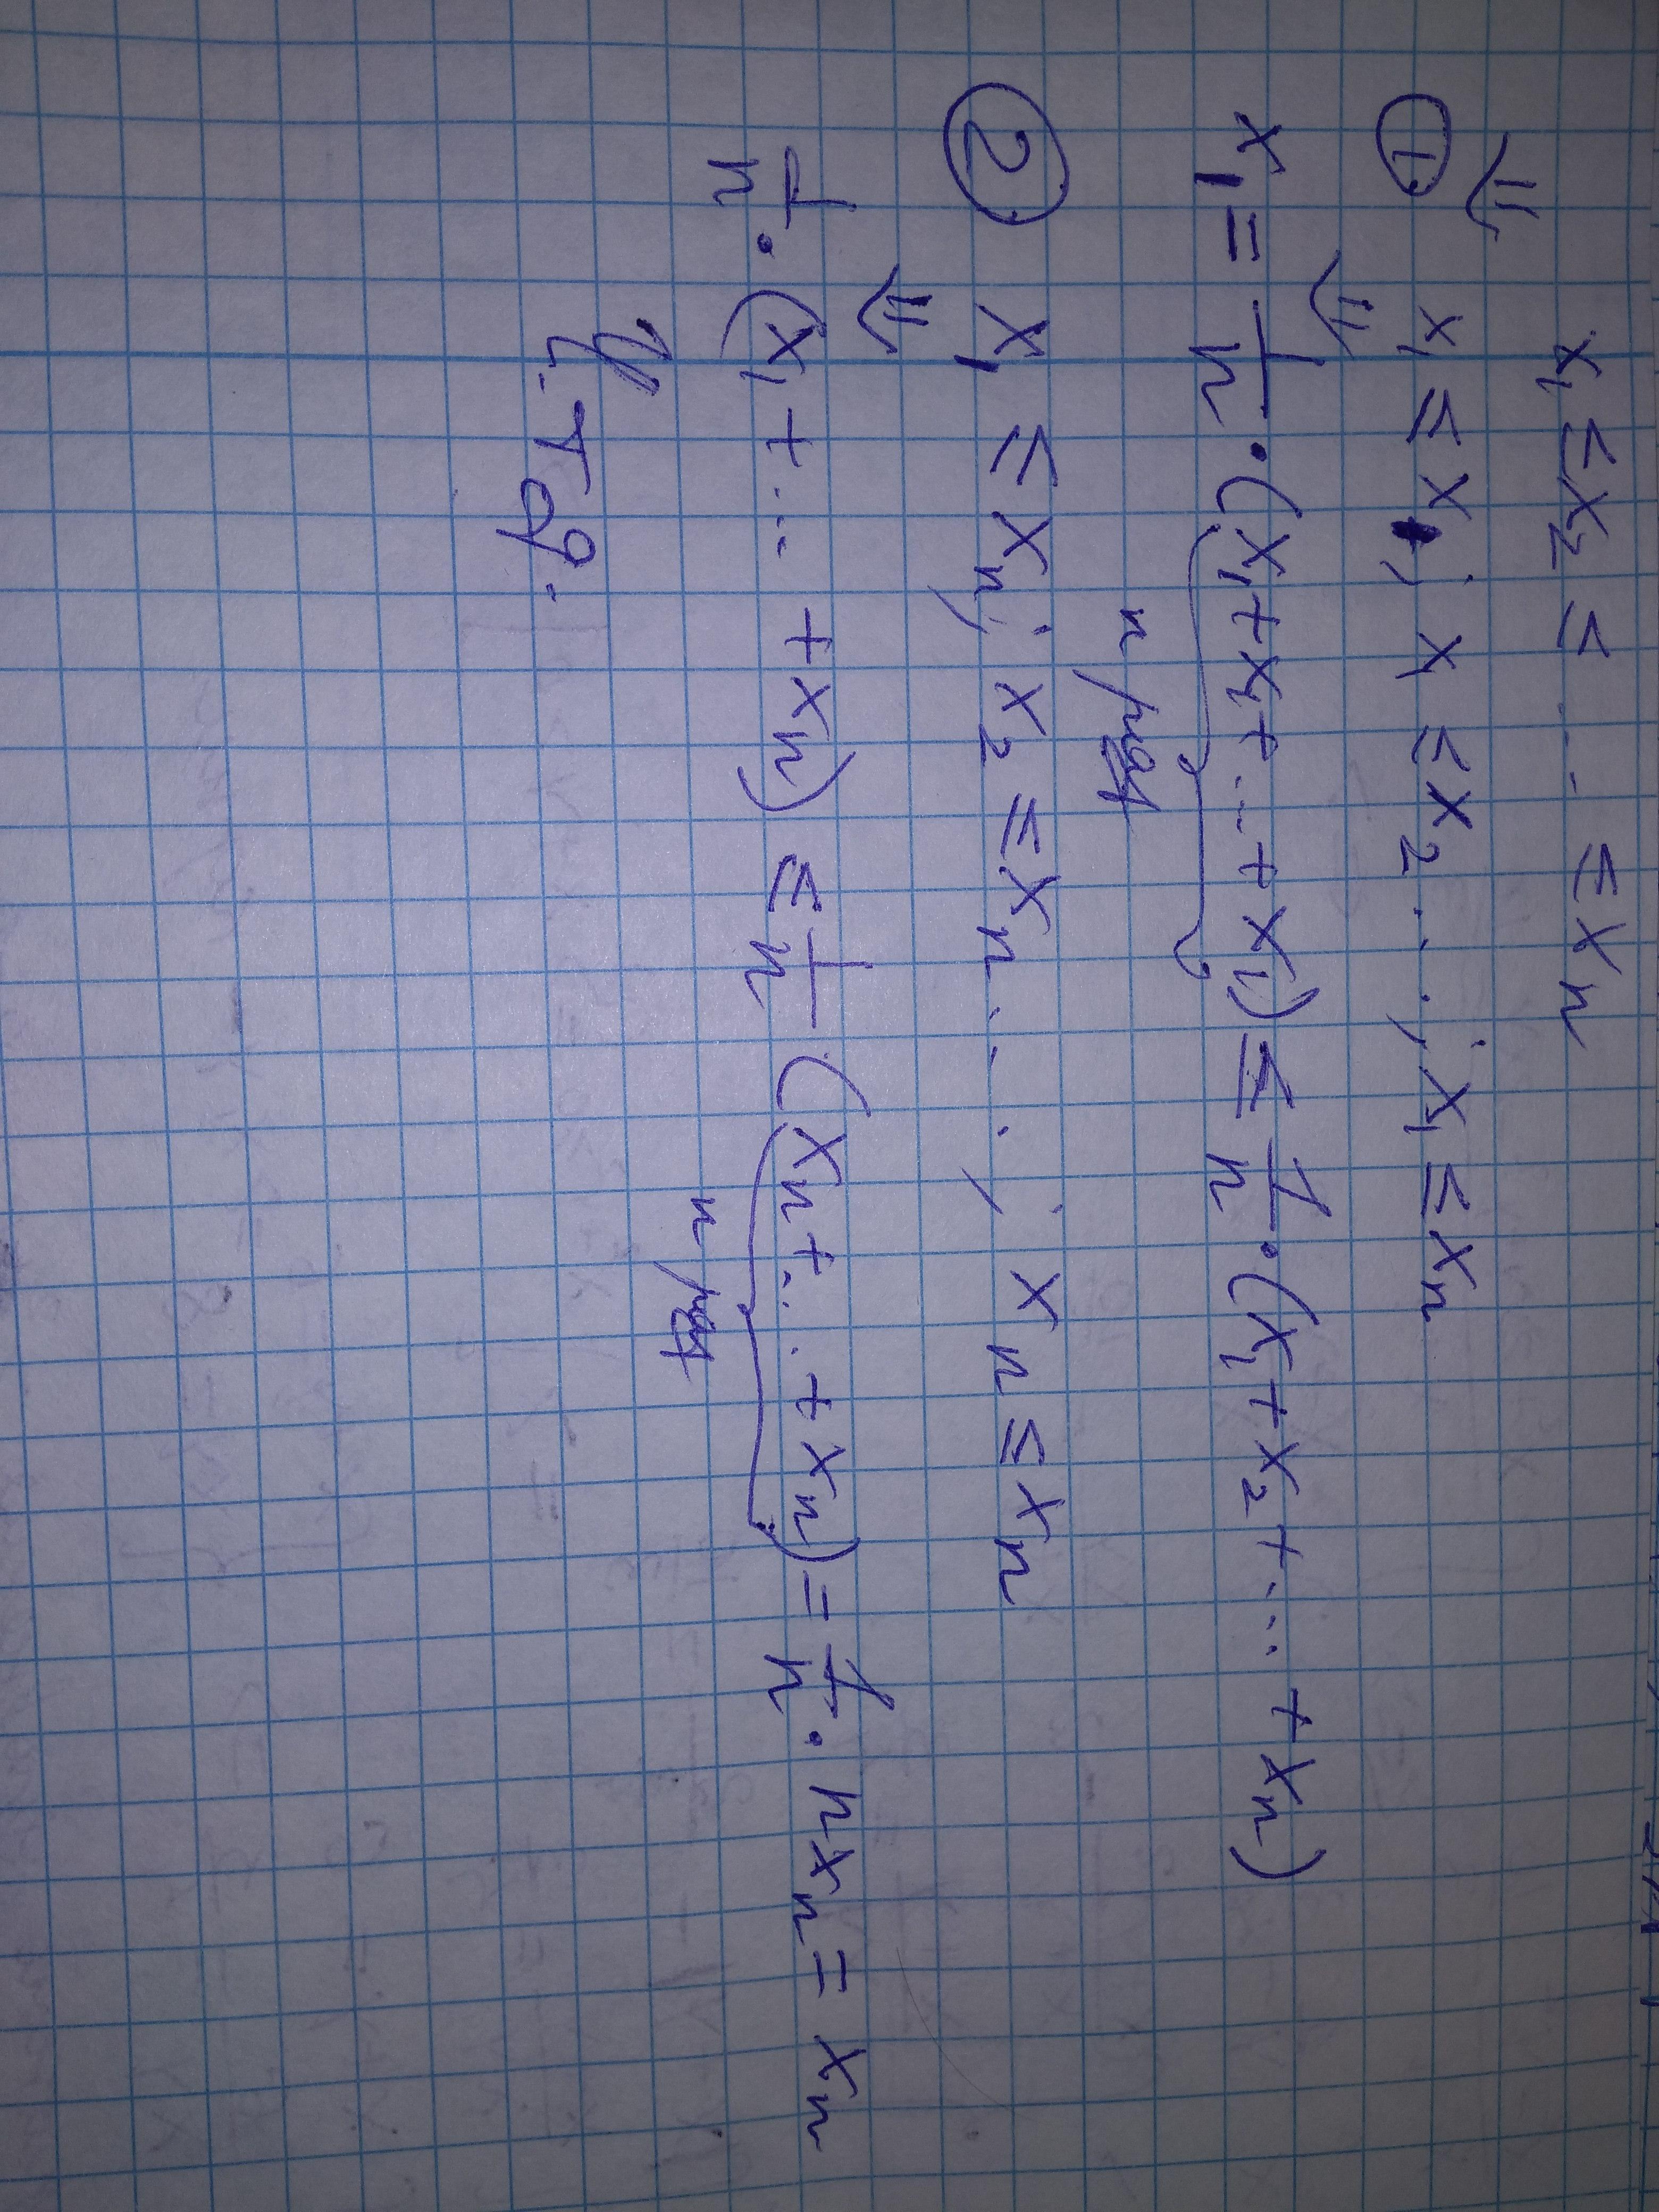 x₁ ≤ x₂ ≤ ... ≤ xₙ
⇓
① x₁ ≤ x₁; x₁ ≤ x₂ ...; x₁ ≤ xₙ
⇓
x₁ = 1/n · (x₁ + x₁ + ... + x₁) ≤ 1/n · (x₁ + x₂ + ... + xₙ)
n
② x₁ ≤ xₙ; x₂ ≤ xₙ ...; xₙ ≤ xₙ
⇓
1/n · (x₁ + ... + xₙ) ≤ 1/n (xₙ + ... + xₙ) = 1/n · nxₙ = xₙ
n